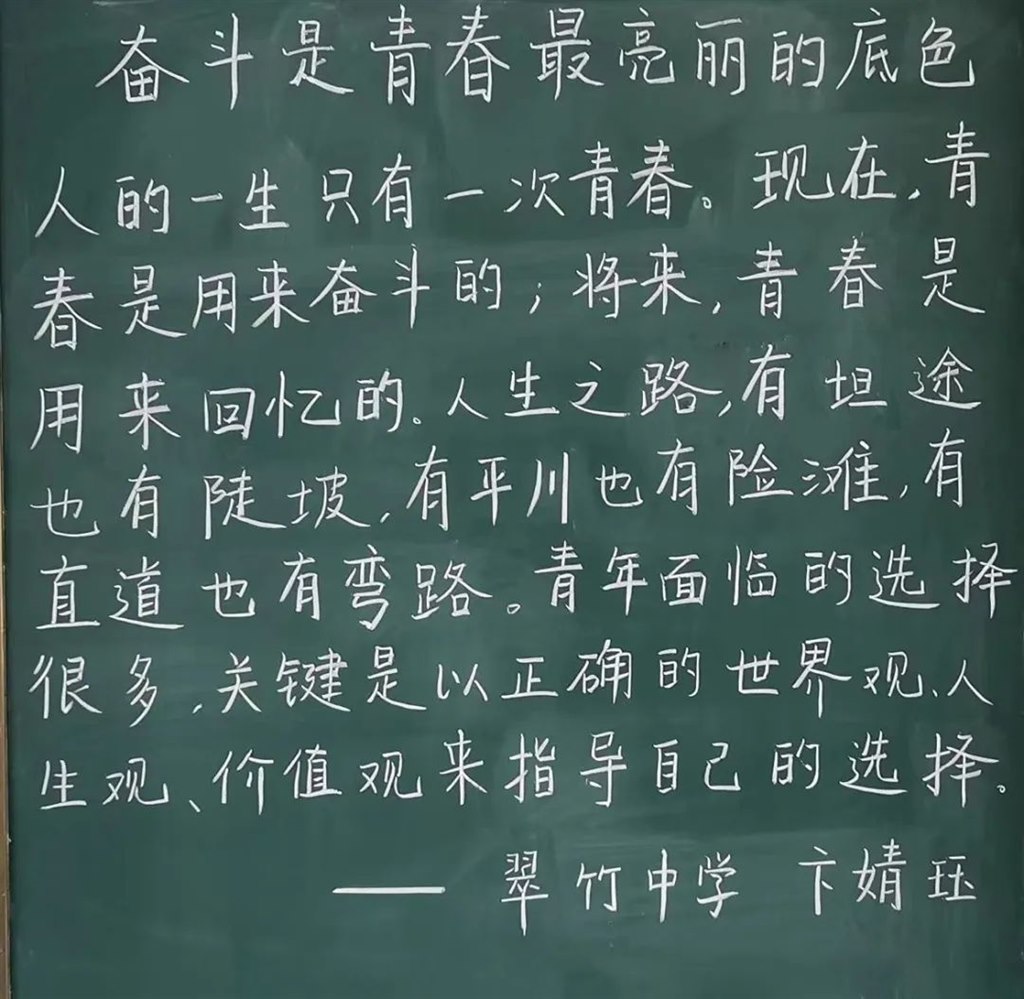 奋斗是青春最亮丽的底色
人的一生只有一次青春。现在,青
春是用来奋斗的;将来,青春是
用来回忆的。人生之路,有坦途
也有陡坡,有平川也有险滩,有
直道也有弯路。青年面临的选择
很多,关键是以正确的世界观、人
生观、价值观来指导自己的选择。
—— 翠竹中学 卞婧珏